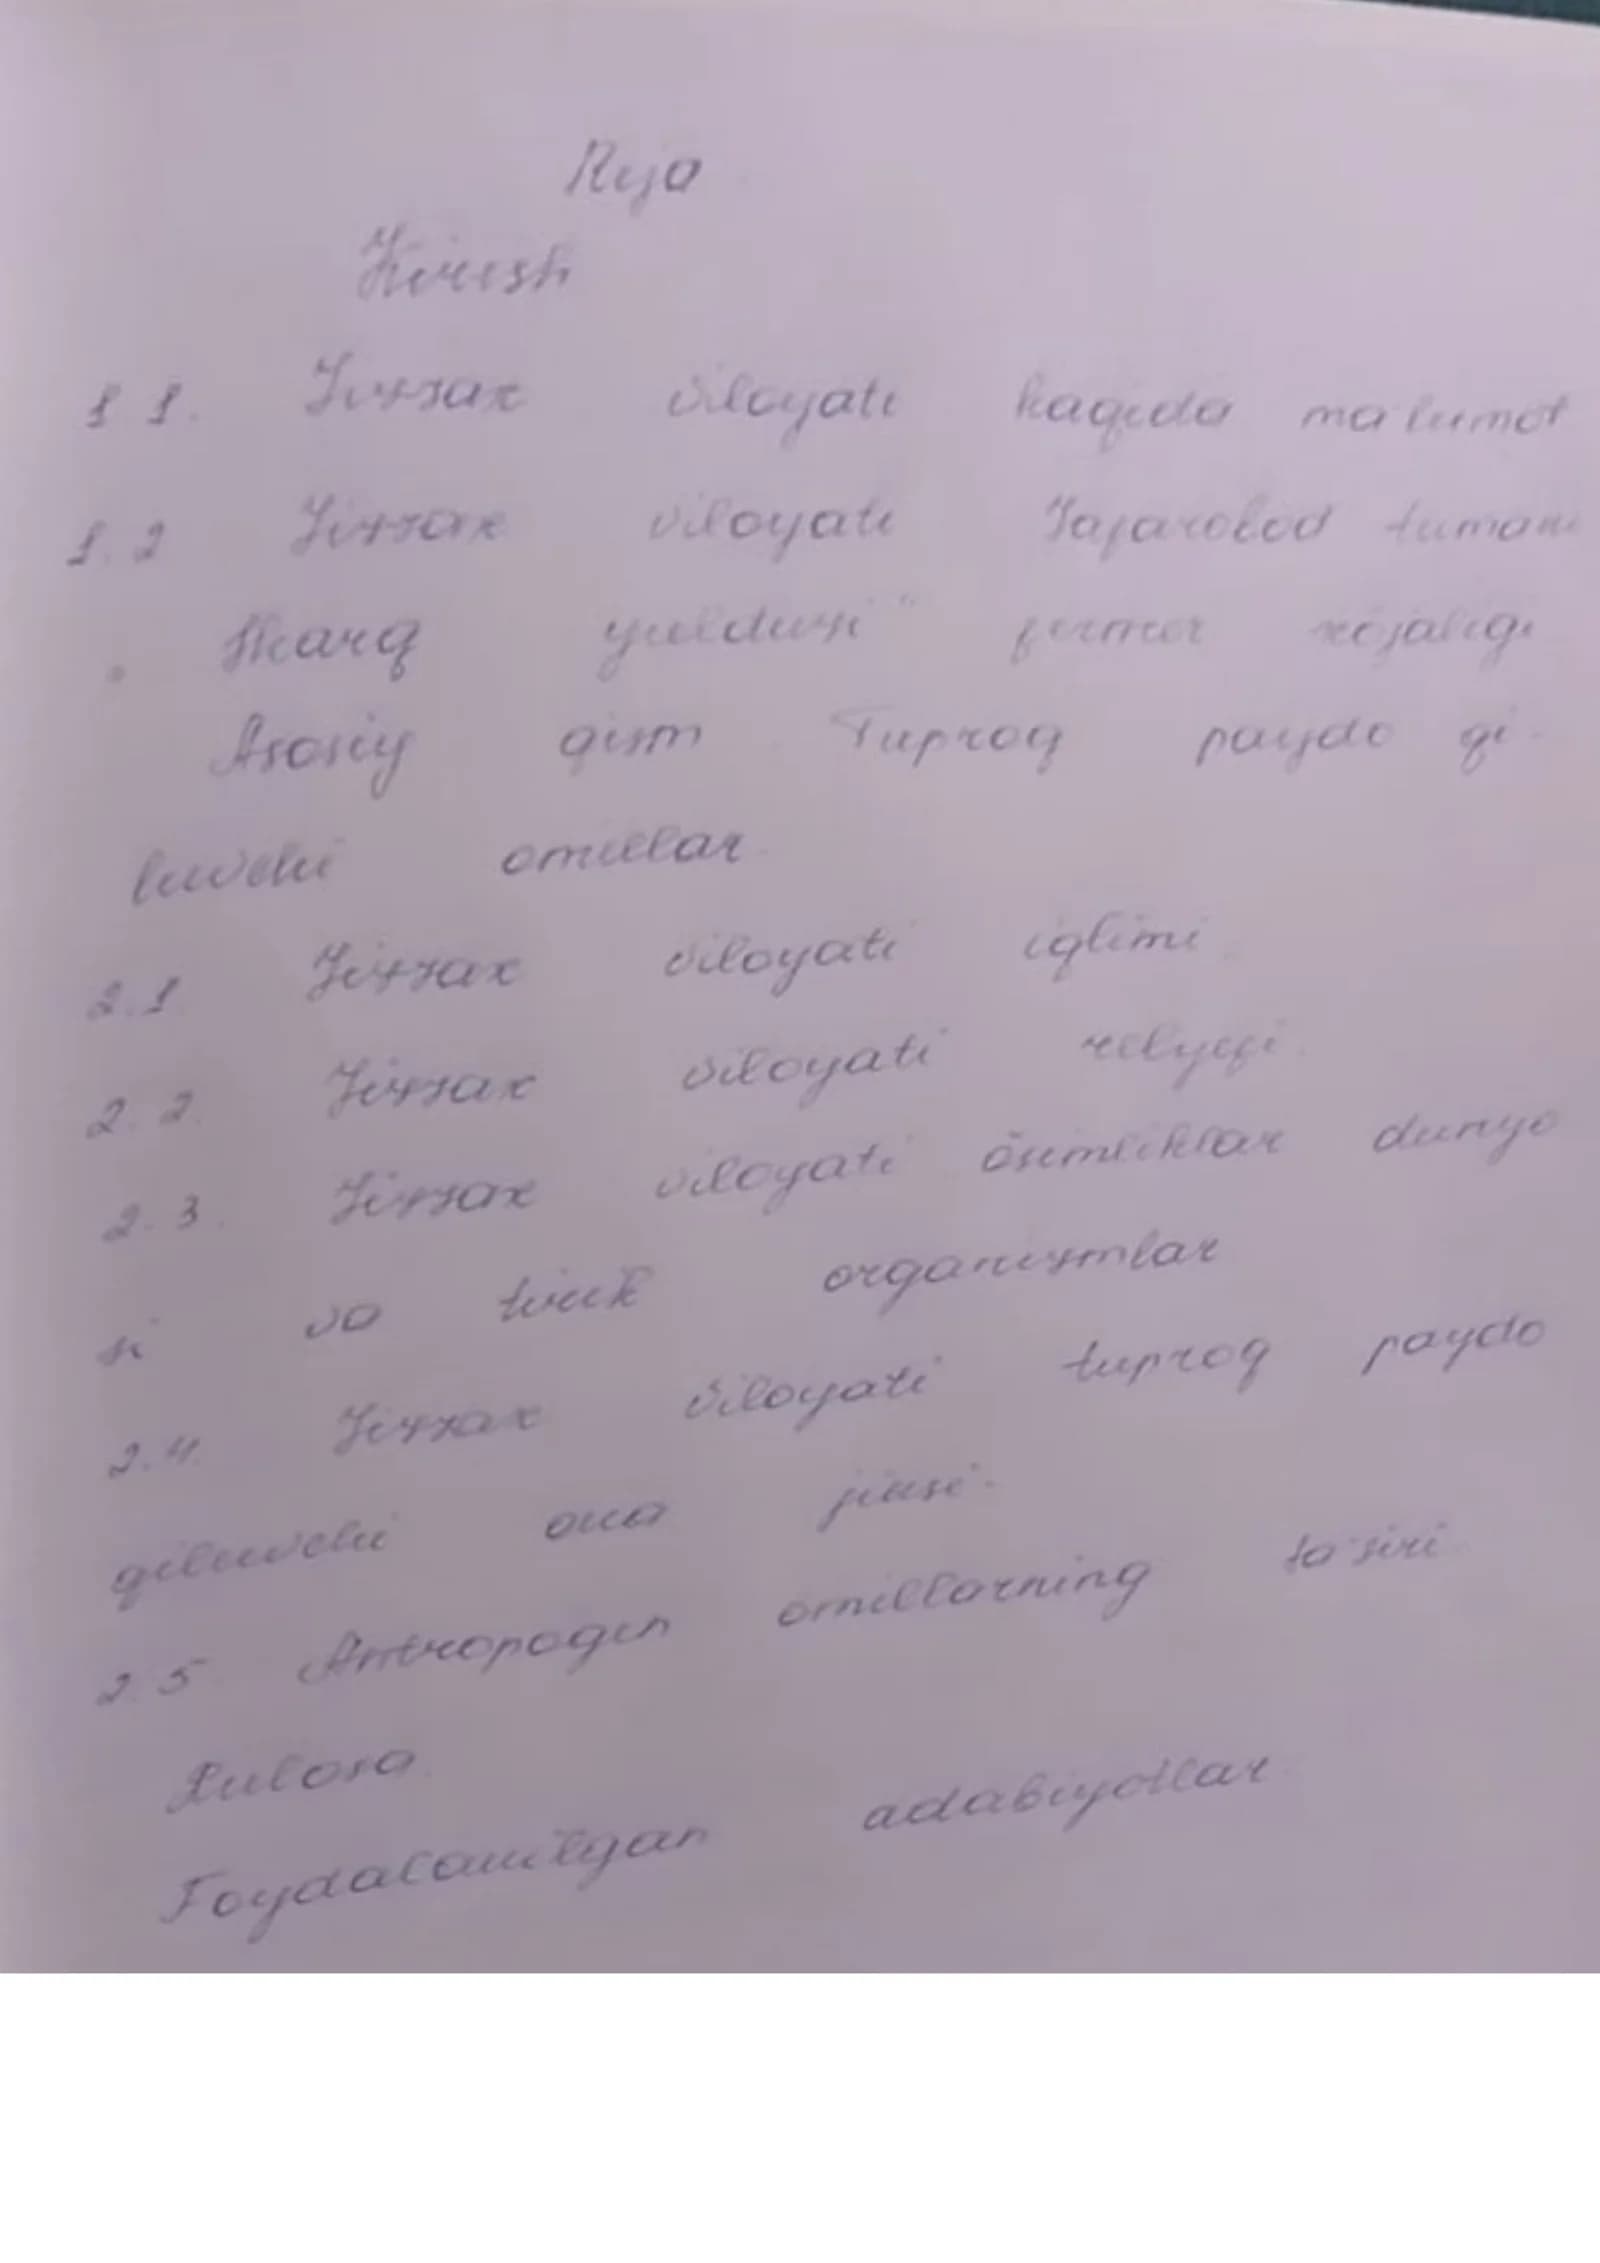 Reja
Kirish
1.1. Jizzax viloyati haqida malumot
1.2 Jizzax viloyati Zafarobod tumani
"Sharq yulduzi" fermer xöjaligi
Asosiy qism Tuproq paydo qi-
luvchi omillar
2.1 Jizzax viloyati iqlimi
2.2. Jizzax viloyati relyefi.
2.3. Jizzax viloyati ösimliklar dunyo
si va tirik organizmlar
2.4. Jizzax viloyati tuproq paydo
qiluvchi ona jinsi.
2.5 Antropogen omillarning ta'siri
Xulosa
Foydalanilgan adabiyotlar